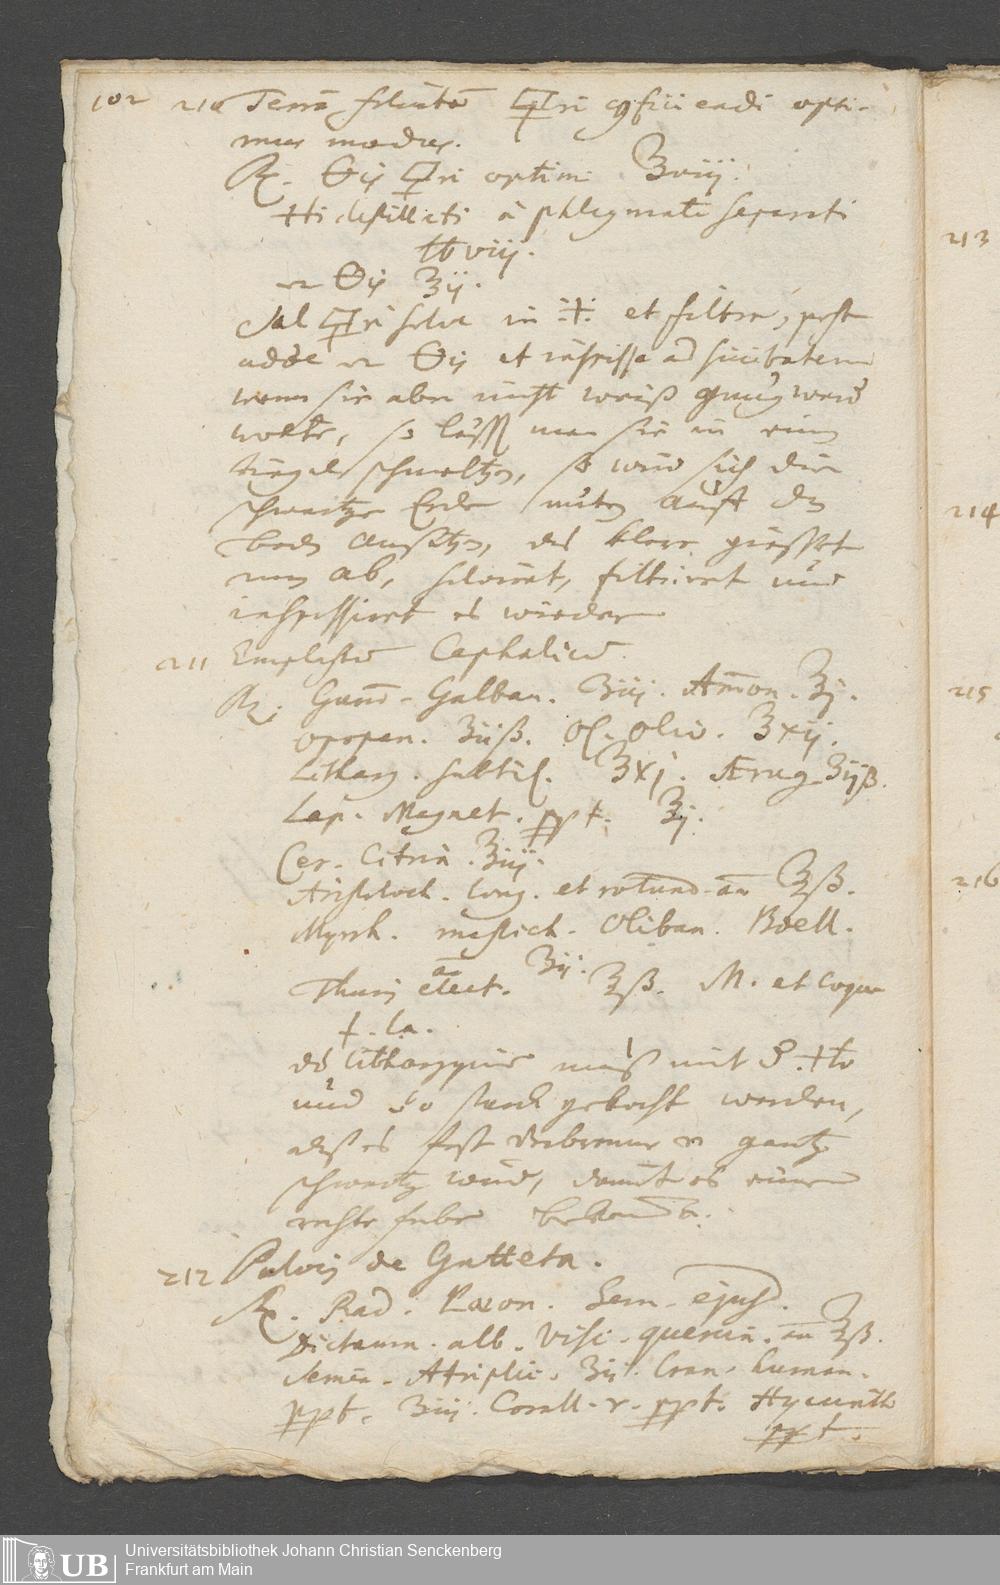 102 210 Terrā foliatā 🜿ri conficiendi opti-
mus modus.
℞. 🜔is 🜿ri optimi ℥viij.
🜊ti destillati à phlegmate separati
℔ viij.
🜔is ℥ij.
Sal 🜿ri solve in 🜊 et filtra, post
adde 🜔is et inspissa ad siccitatem
wenn sie aber nicht weiß gnug werd
wolte, so lässt man sie in einē
tiegel schmeltzen, so wird sich die
schwartze Erde unten auff den
boden ansetzen, das klare giesset
man ab, solvirt, filtrirt und
inspissirt es wieder
211 Emplastrū Cephalicū.
℞. Gum̄. Galban. ℥iij. Am̄on. ℥j.
opopan. ℥iiß. Ol. Oliv. ℥xij.
Litharg. subtil. ℥xj. Ærug. ℥ijß.
Lap. Magnet. ppt. ℥j.
Cer. Citrin. ℥iij.
Aristoloch. long. et rotund. an ℥ß.
Myrrh. mastich. Oliban. Bdell.
an ℥ij.
Thuris elect. ℥ß. M. et coque
f. l. a.
das Lithargyriū muß mit 🜊to
und so starck gekocht werden,
daß es fast verbrenne u gantz
schwartz wird, damit es eine
rechte farbe bekomt.
212 Pulvis de Gutteta.
℞. Rad. Pæon. Sem. ejusd.
Dictamn. alb. Visci. quercin. an ℥ß.
Semin. Atriplic. ʒij. Cran. human.
ppt. ʒiij. Corall. r. ppt. Hyacinth
ppt.
213
214
215
216
UB Universitätsbibliothek Johann Christian Senckenberg
Frankfurt am Main